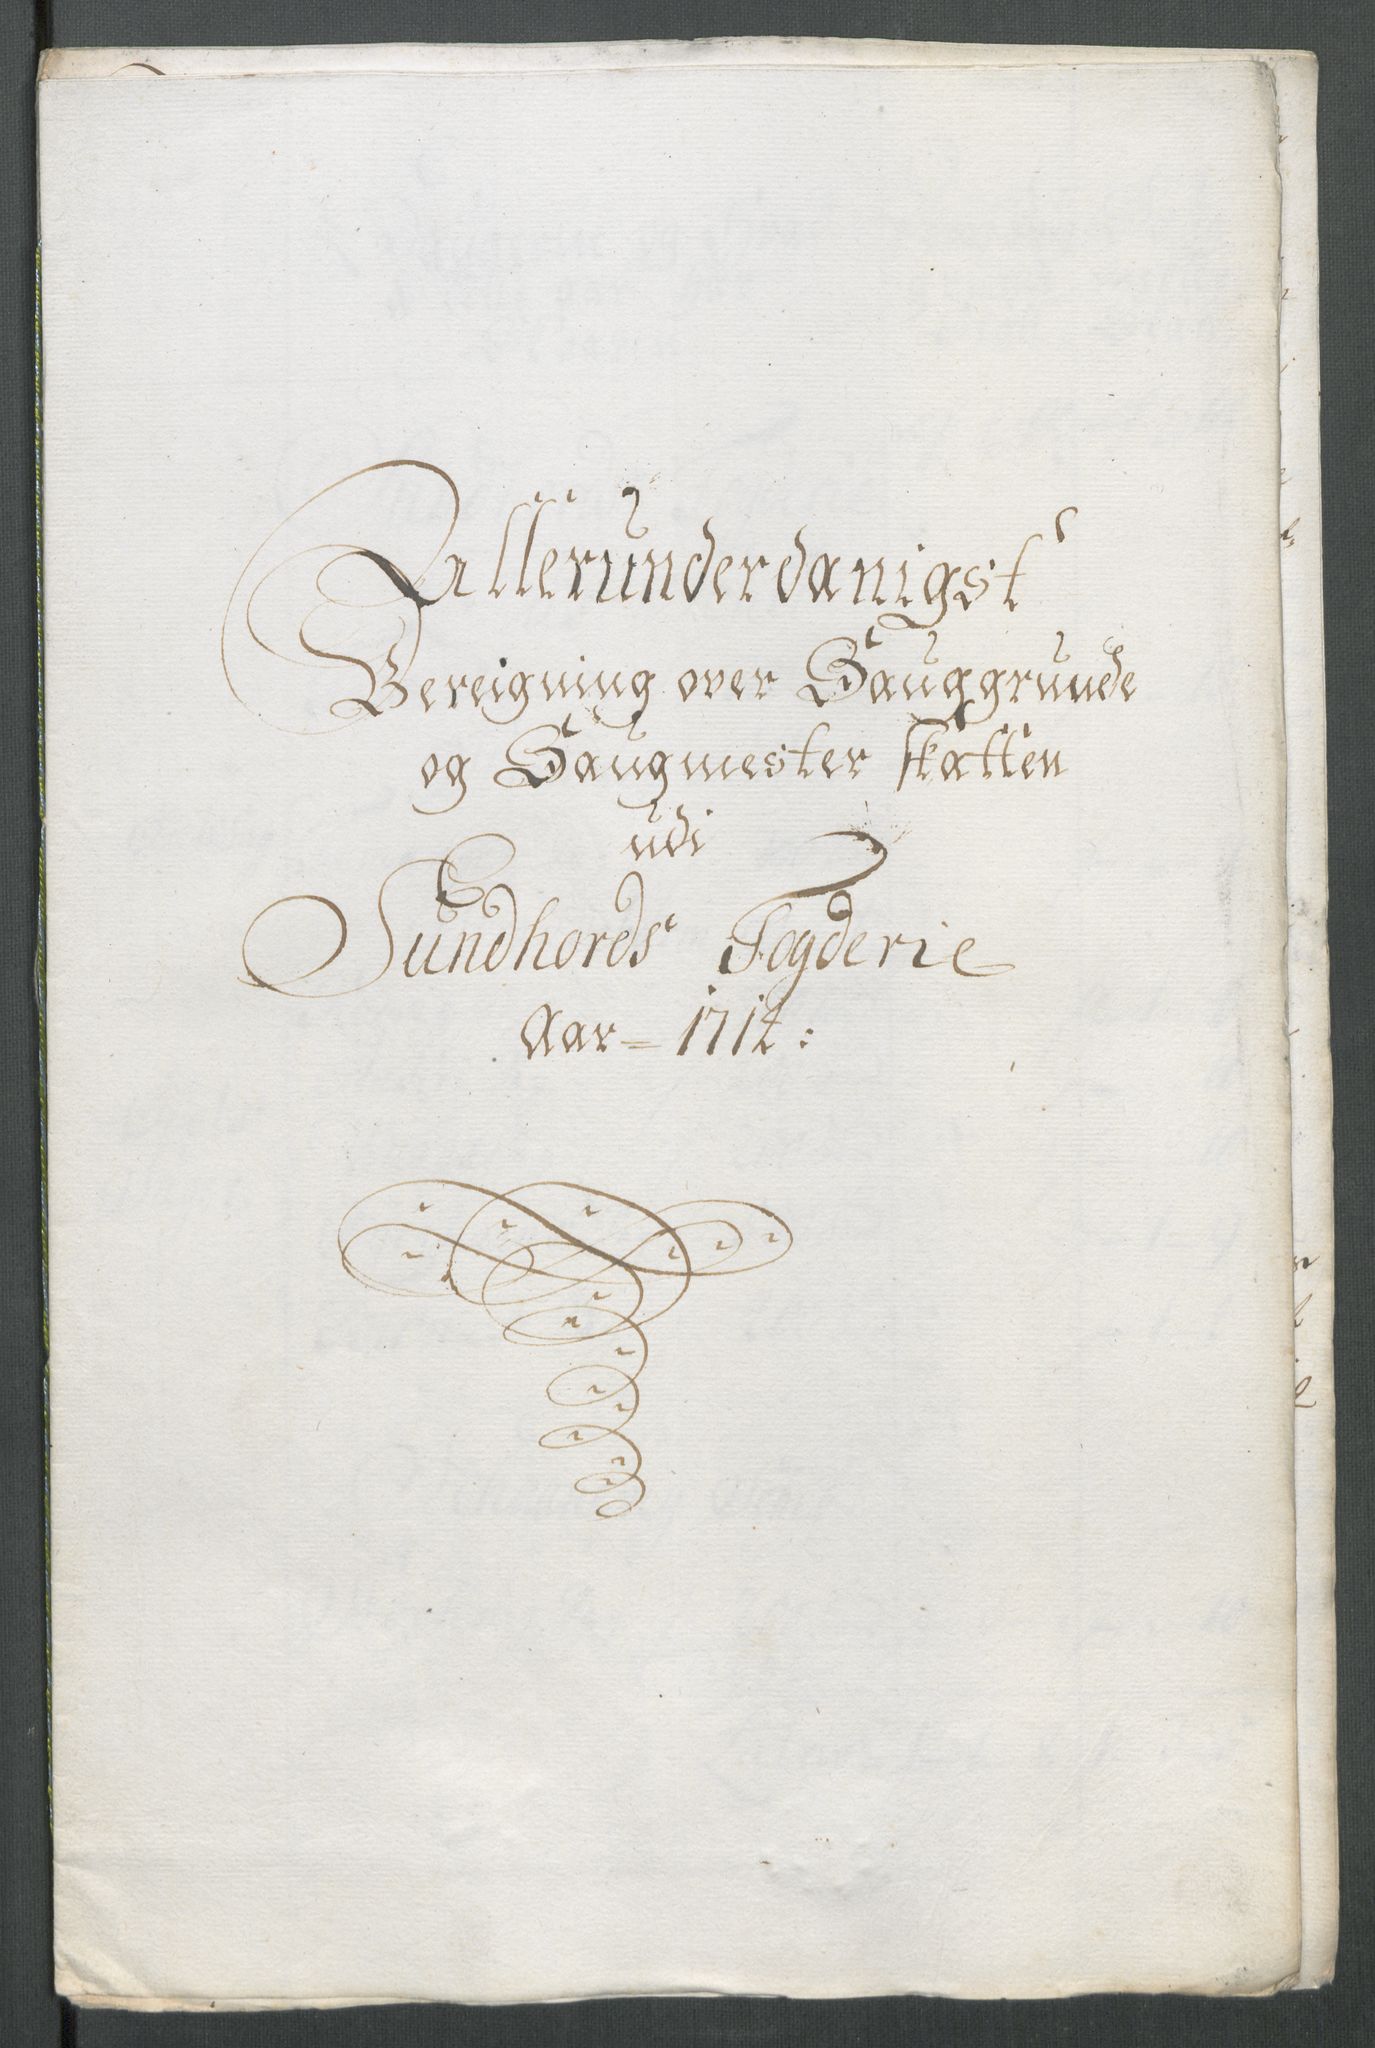 Allerunderdanigst
Bereigning over Saugगrunde
og Saugmester skatten
udi
Sundhords Fogderie
Aar = 1712: